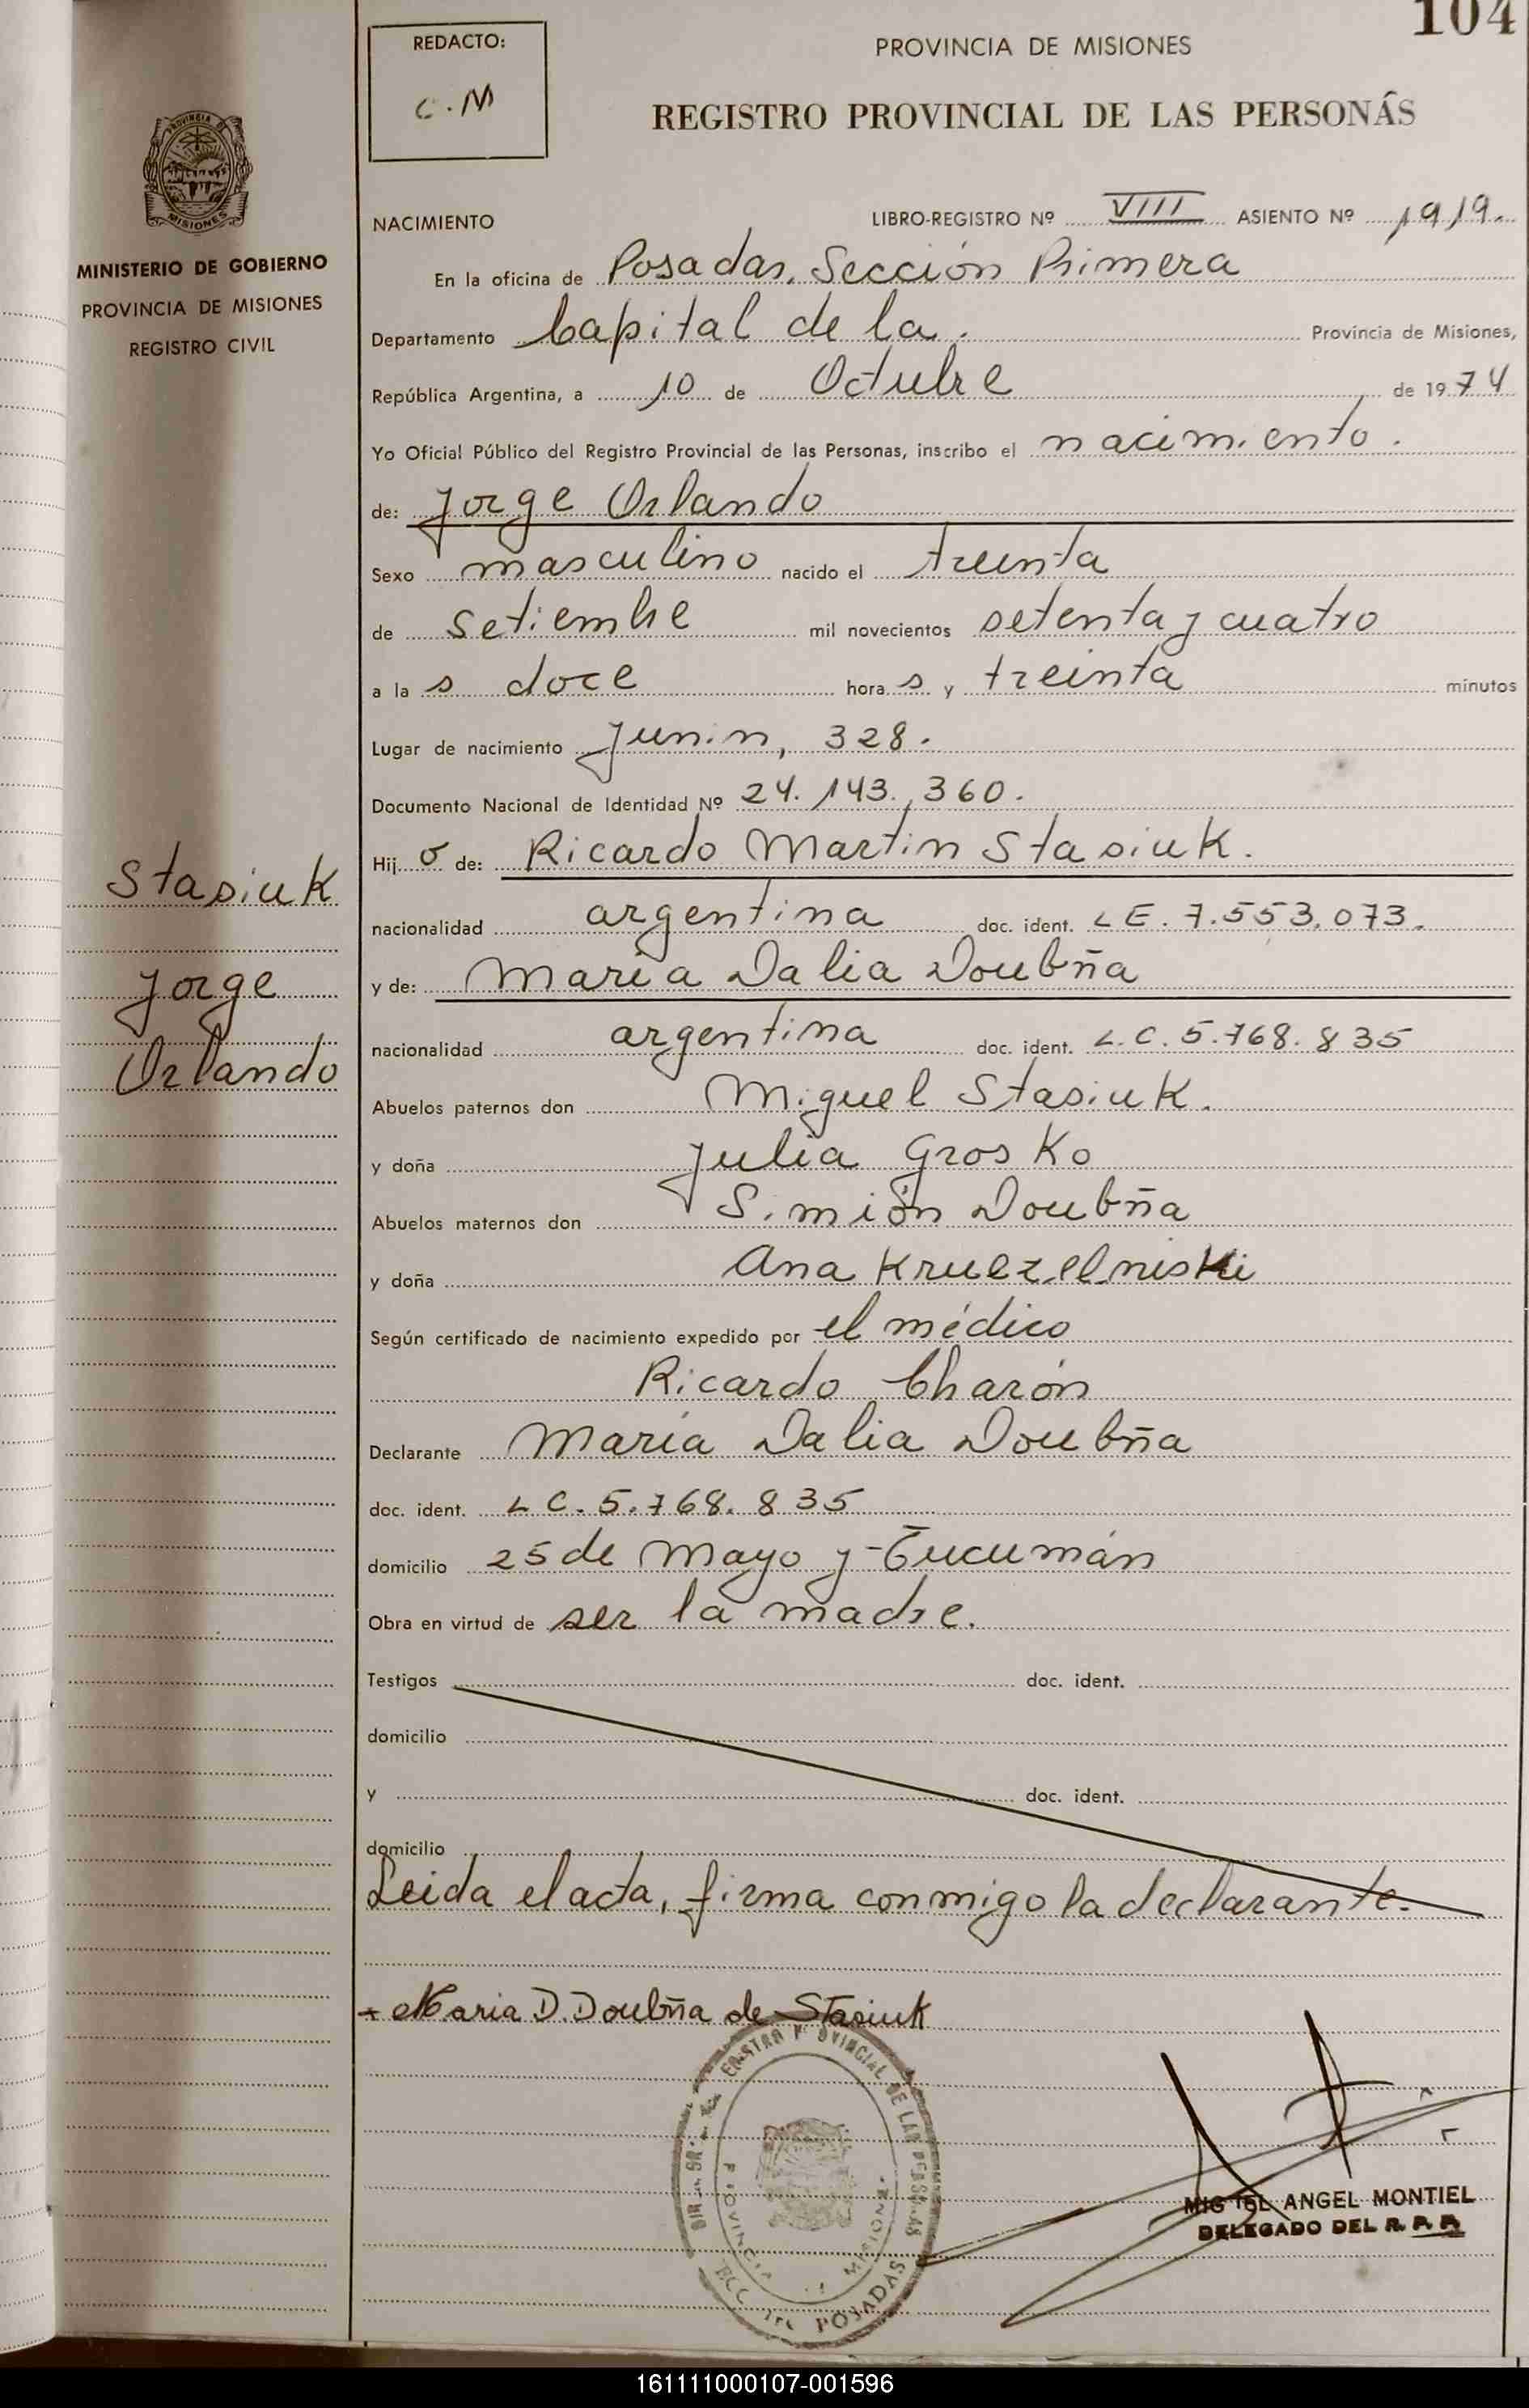 104
REDACTO:
C.M
PROVINCIA DE MISIONES
REGISTRO PROVINCIAL DE LAS PERSONAS
MISIONES
MINISTERIO DE GOBIERNO
PROVINCIA DE MISIONES
REGISTRO CIVIL
NACIMIENTO LIBRO-REGISTRO Nº VIII ASIENTO Nº 1919.
En la oficina de Posadas, Sección Primera
Departamento Capital de la. Provincia de Misiones,
República Argentina, a 10 de Octubre de 1974
Yo Oficial Público del Registro Provincial de las Personas, inscribo el nacimiento.
de: Jorge Orlando
Sexo masculino nacido el treinta
de setiembre mil novecientos setenta y cuatro
a la s doce hora s y treinta minutos
Lugar de nacimiento Junin, 328.
Documento Nacional de Identidad Nº 24.143.360.
Hij o de: Ricardo Martin Stasiuk.
Stasiuk
nacionalidad argentina doc. ident. LE. 7.553.073.
y de: Maria Dalia Doubña
Jorge
Orlando
nacionalidad argentina doc. ident. L.C. 5.768.835
Abuelos paternos don Miguel Stasiuk.
y doña Julia Grosko
Abuelos maternos don Simión Doubña
y doña Ana Kruezelniski
Según certificado de nacimiento expedido por el médico
Ricardo Charón
Declarante Maria Dalia Doubña
doc. ident. L C. 5.768.835
domicilio 25 de Mayo y Tucumán
Obra en virtud de ser la madre.
Testigos doc. ident.
domicilio
y doc. ident.
domicilio
Leida el acta, firma conmigo la declarante.
Maria D. Doubña de Stasiuk
PROVINCIAL DE LAS PERSONAS
PROVINCIA MISIONES
POSADAS
MIGUEL ANGEL MONTIEL
DELEGADO DEL R. P. P.
161111000107-001596